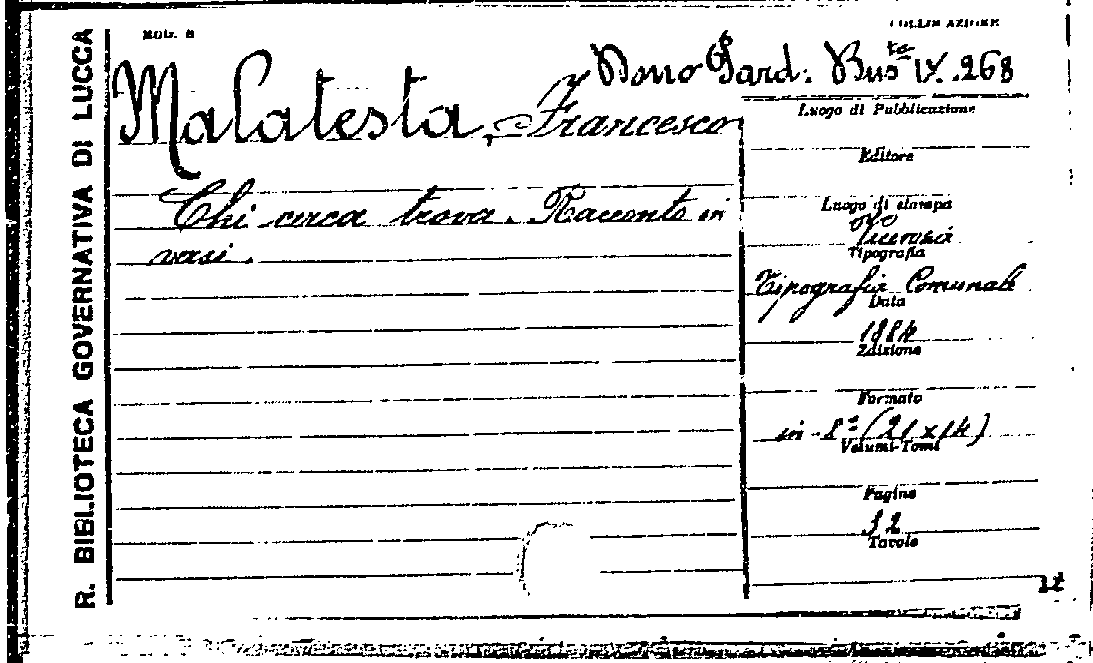 R. BIBLIOTECA GOVERNATIVA DI LUCCA
Mod. B
COLLOCAZIONE
Dono Sard. Busta IX. 268
Malatesta, Francesco
Chi cerca trova. Racconto in
versi.
Luogo di Pubblicazione
Editore
Luogo di stampa
Tipografia
Tipografia Comunale
Data
1884
Edizione
Formato
in-8° (21x14)
Volumi-Tomi
Pagine
32
Tavole